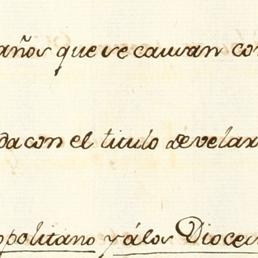 años que se causan con
da con el titulo de velar
opolitano y á los Dioces